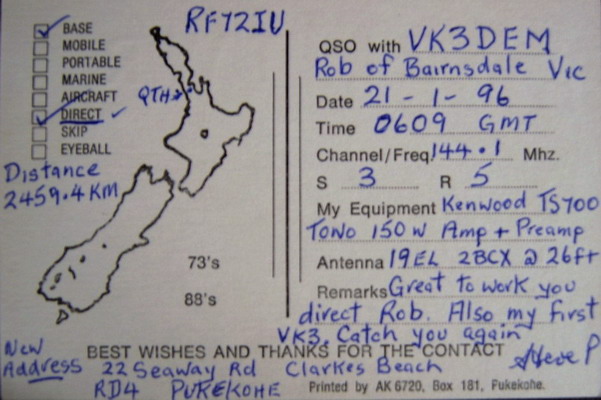 RF72IU
BASE
MOBILE
PORTABLE
MARINE
AIRCRAFT
DIRECT
SKIP
EYEBALL
QTH
Distance
2459.4 KM
73's
88's
QSO with VK3DEM
Rob of Bairnsdale Vic
Date 21-1-96
Time 0609 GMT
Channel/Freq 144.1 Mhz.
S 3 R 5
My Equipment Kenwood TS700
TONO 150W Amp + Preamp
Antenna 19EL 2BCX @ 26ft
Remarks Great to work you
direct Rob. Also my first
VK3. Catch you again
BEST WISHES AND THANKS FOR THE CONTACT
Steve P
New
Address 22 Seaway Rd Clarkes Beach
RD4 PUKEKOHE
Printed by AK 6720, Box 181, Pukekohe.